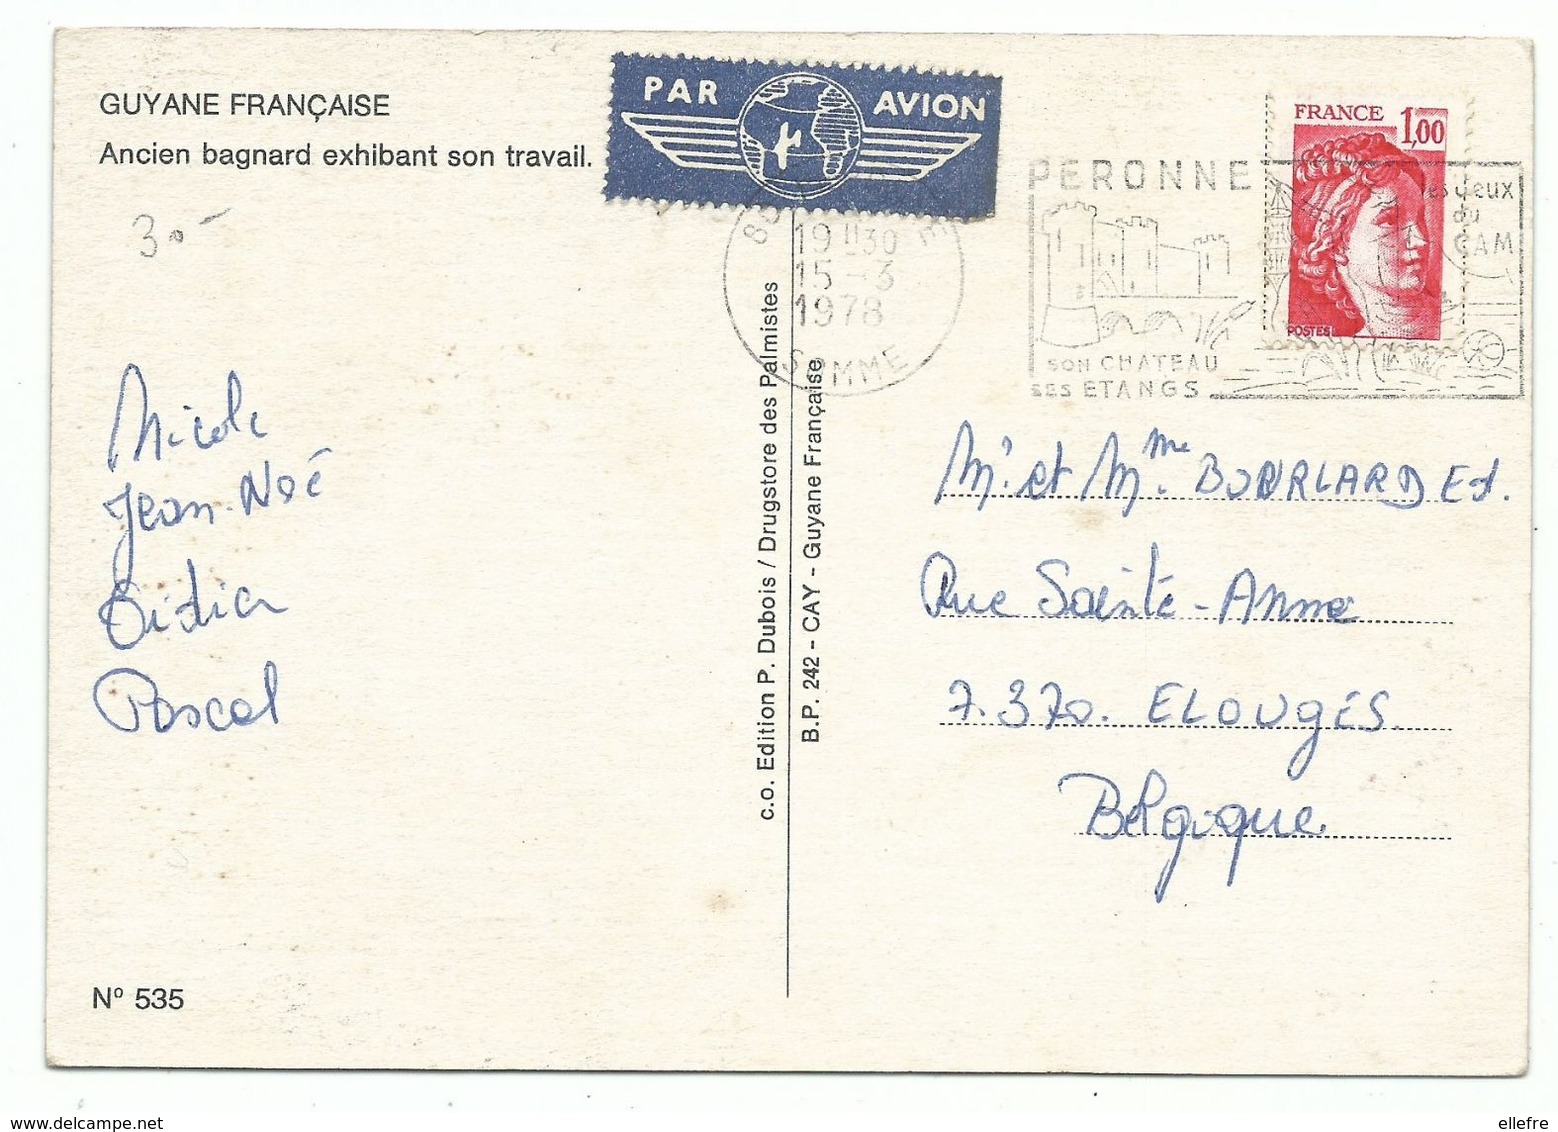 GUYANE FRANÇAISE
Ancien bagnard exhibant son travail.
30.-
PAR AVION
19 30
15 -3
1978
SOMME
PERONNE
SON CHATEAU
SES ETANGS
les Jeux
du
CAM
FRANCE 1,00
POSTES
Nicole
Jean-Noé
Didier
Pascal
c.o. Edition P. Dubois / Drugstore des Palmistes
B.P. 242 - CAY - Guyane Française
Mr et Mme Ed.
Rue Sainte-Anne
7.370. ELOUGES
Belgique
Nº 535
ellefre
www.delcampe.net